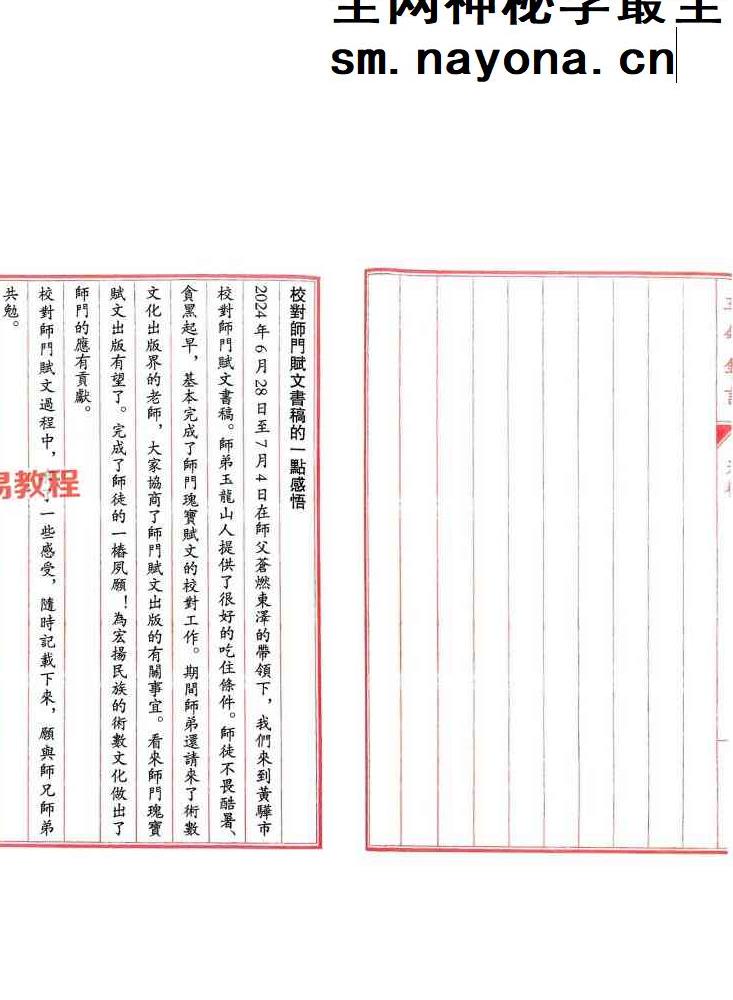 全网神秘学最全
sm.nayona.cn
校對師門賦文書稿的一點感悟
2024年6月28日至7月4日在師父蒼燃東澤的帶領下，我們來到黃驊市
校對師門賦文書稿。師弟玉龍山人提供了很好的吃住條件。師徒不畏酷暑、
貪黑起早，基本完成了師門瑰寶賦文的校對工作。期間師弟還請來了術數
文化出版界的老師，大家協商了師門賦文出版的有關事宜。看來師門瑰寶
賦文出版有望了。完成了師徒的一樁夙願！為宏揚民族的術數文化做出了
師門的應有貢獻。
校對師門賦文過程中，一些感受，隨時記載下來，願與師兄師弟
共勉。
易教程